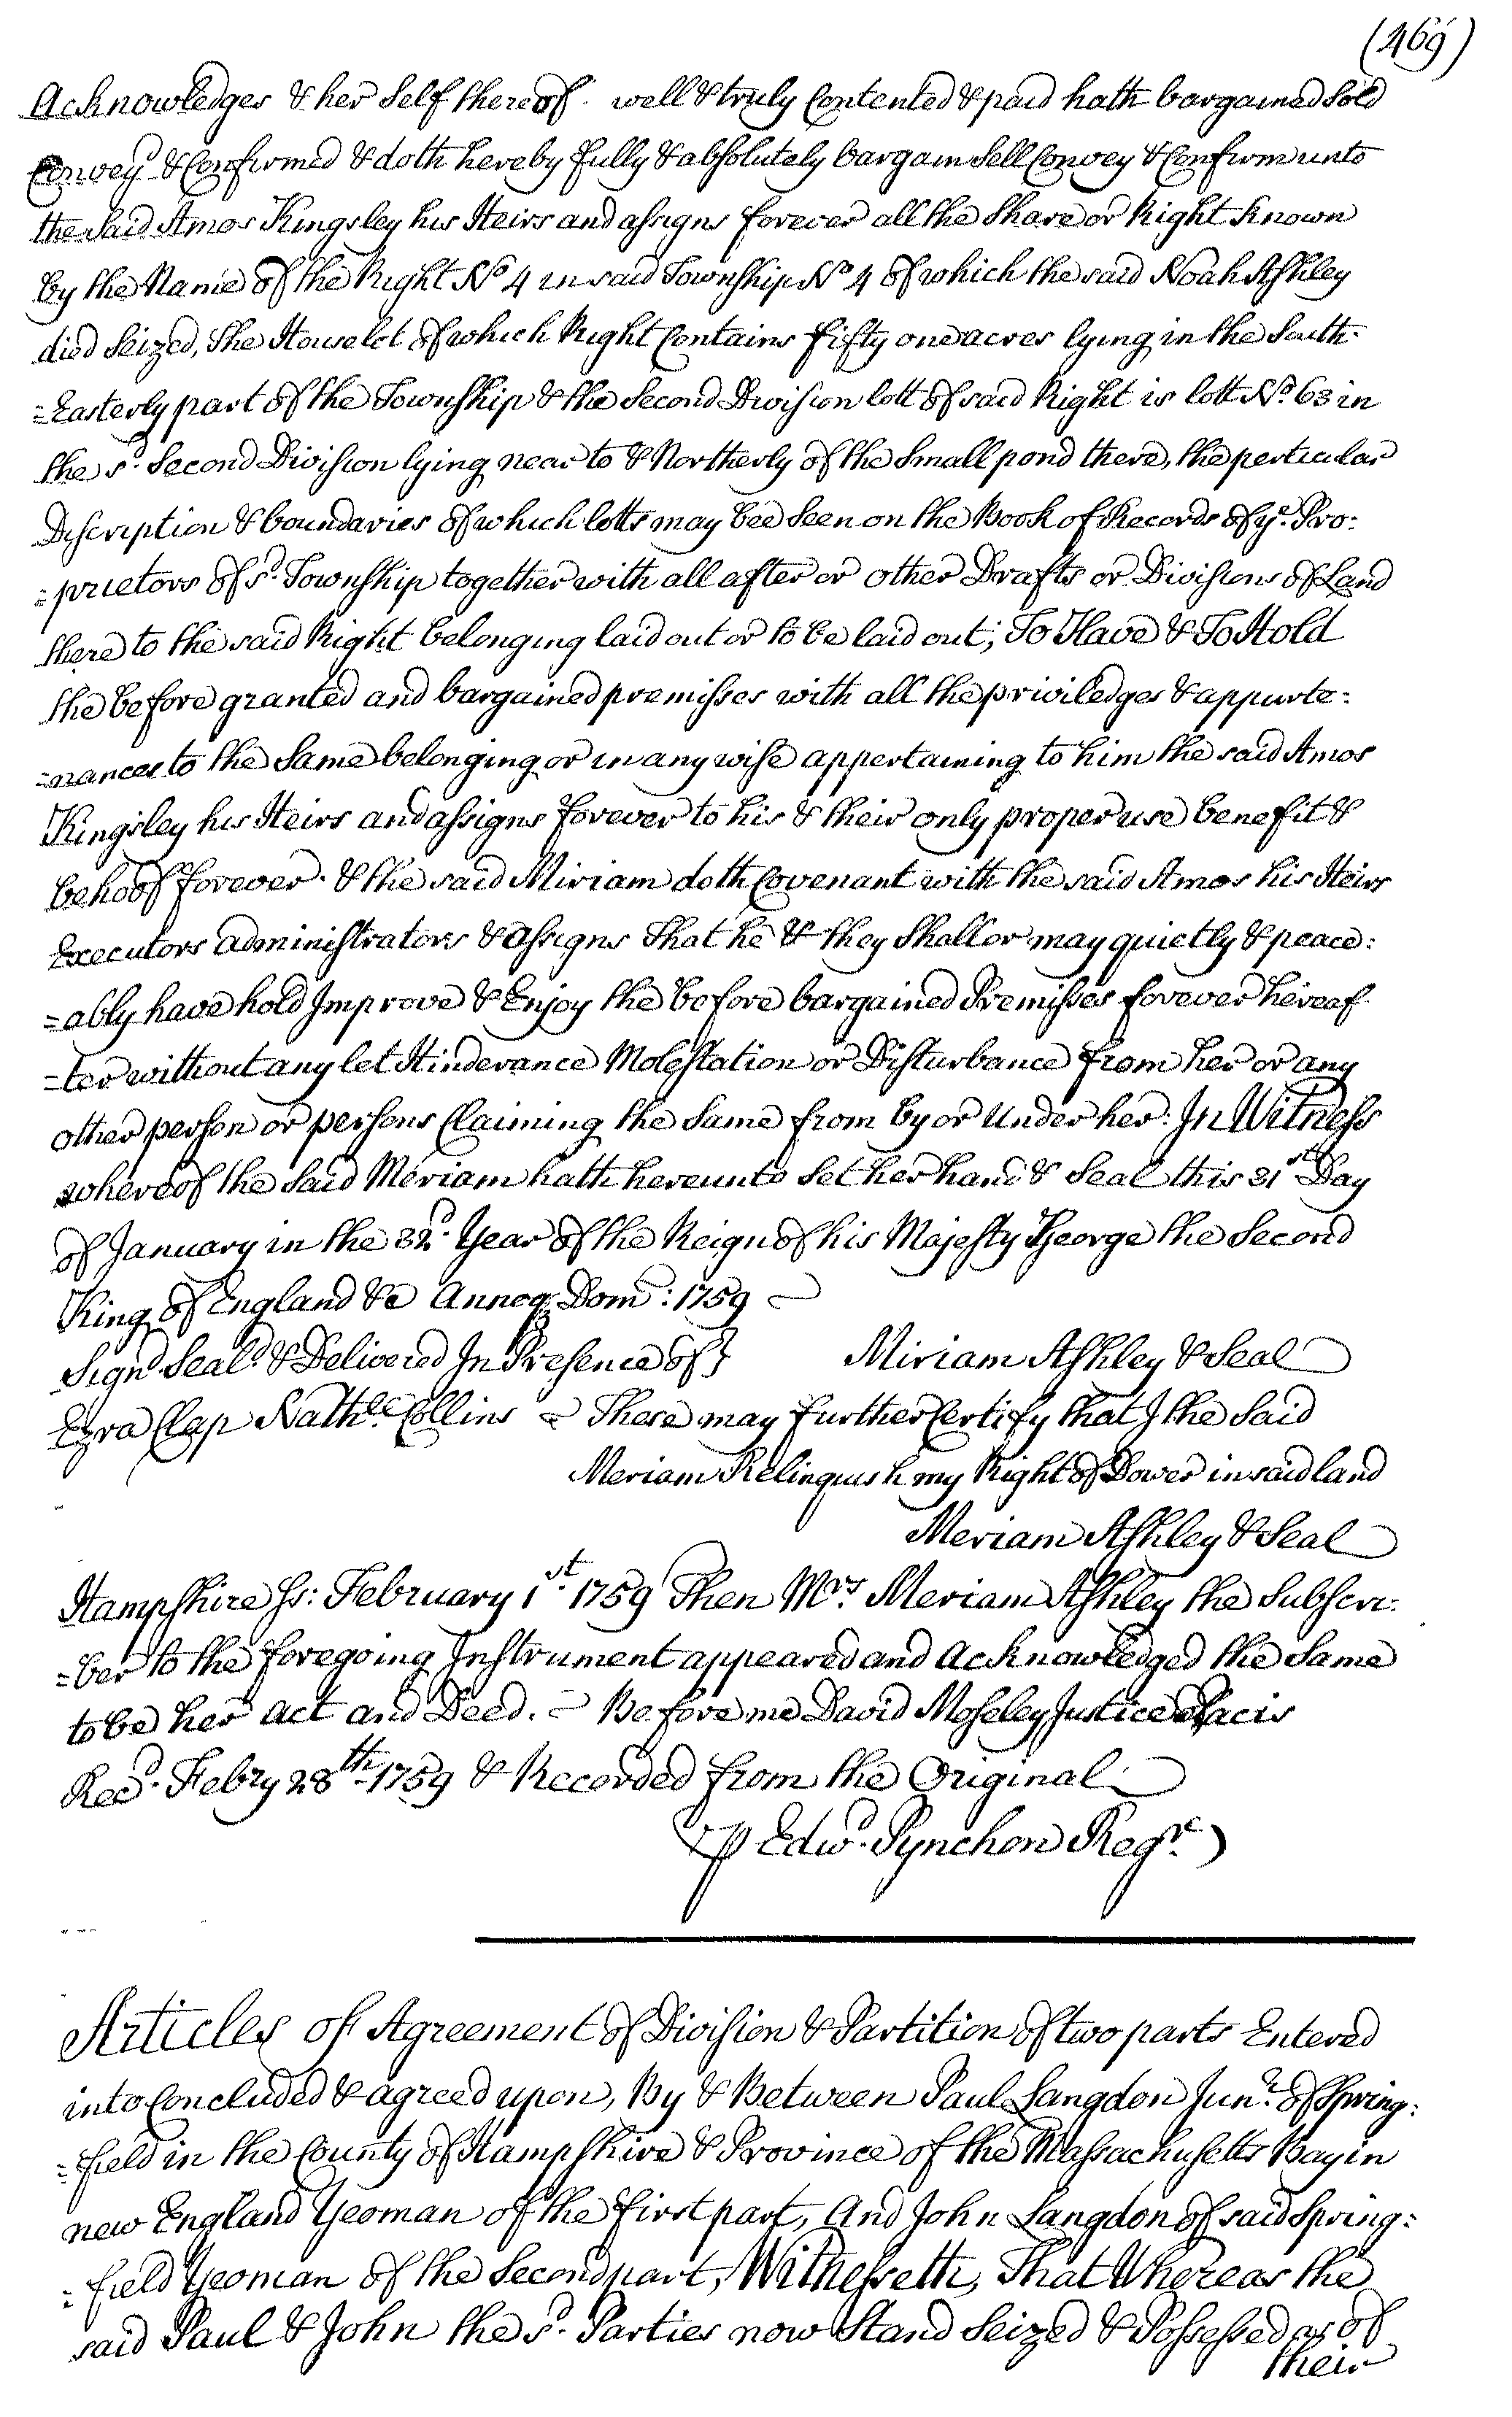 (469)
Acknowledges & her Self thereof well & truly Contented & paid hath bargained Sold
Convey'd & Confirmed & doth hereby fully & absolutely bargain Sell Convey & Confirm unto
the Said Amos Kingsley his Heirs and assigns forever all the Share or Right Known
by the Name of the Right No 4 in said Township No 4 of which the said Noah Ashley
died Seized, The House lot of which Right Contains fifty one acres lying in the South-
=Easterly part of the Township & the Second Division lott of said Right is lott No. 63 in
the sd. Second Division lying near to & Northerly of the Small pond there, the perticular
Discription & boundaries of which lotts may bee Seen on the Book of Records of ye. Pro:
=prietors of sd. Township together with all after or other Drafts or Divisions of Land
there to the said Right belonging laid out or to be laid out; To Have & To Hold
the before granted and bargained premisses with all the priviledges & appurte:
=nances to the Same belonging or in any wise appertaining to him the said Amos
Kingsley his Heirs and assigns forever to his & their only proper use benefit &
behoof forever. & the said Miriam doth Covenant with the said Amos his Heirs
Executors administrators & assigns That he & they Shall or may quietly & peace:
=ably have hold Improve & Enjoy the before bargained Premisses forever hereaf-
=ter without any let Hinderance Molestation or Disturbance from her or any
other person or persons Claiming the Same from by or Under her. In Witness
whereof the Said Meriam hath hereunto Set her hand & Seal this 31st Day
of January in the 32d. Year of the Reign of his Majesty George the Second
King of England &c Annoq Dom: 1759
Signd Seald. & Delivered In Presence of } Miriam Ashley & Seal
Ezra Clap Nathll. Collins These may further Certify that I the Said
Meriam Relinquish my Right of Dower in said land
Meriam Ashley & Seal
Hampshire ss: February 1st. 1759 Then Mrs. Meriam Ashley the Subscri:
=ber to the foregoing Instrument appeared and Acknowledged the Same
to be her act and Deed. Before me David Moseley Justice Pacis
Recd. Febry 28th 1759 & Recorded from the Original
P Edwd. Pynchon Regr.
Articles of Agreement of Division & Partition of two parts Entered
into Concluded & agreed upon, By & Between Paul Langdon Junr. of Spring:
=field in the County of Hampshire & Province of the Massachusetts Bay in
new England Yeoman of the first part, And John Langdon of said Spring:
=field Yeoman of the Second part, Witnesseth, That Whereas the
said Paul & John the sd. Parties now Stand Seized & Possessed as of
their